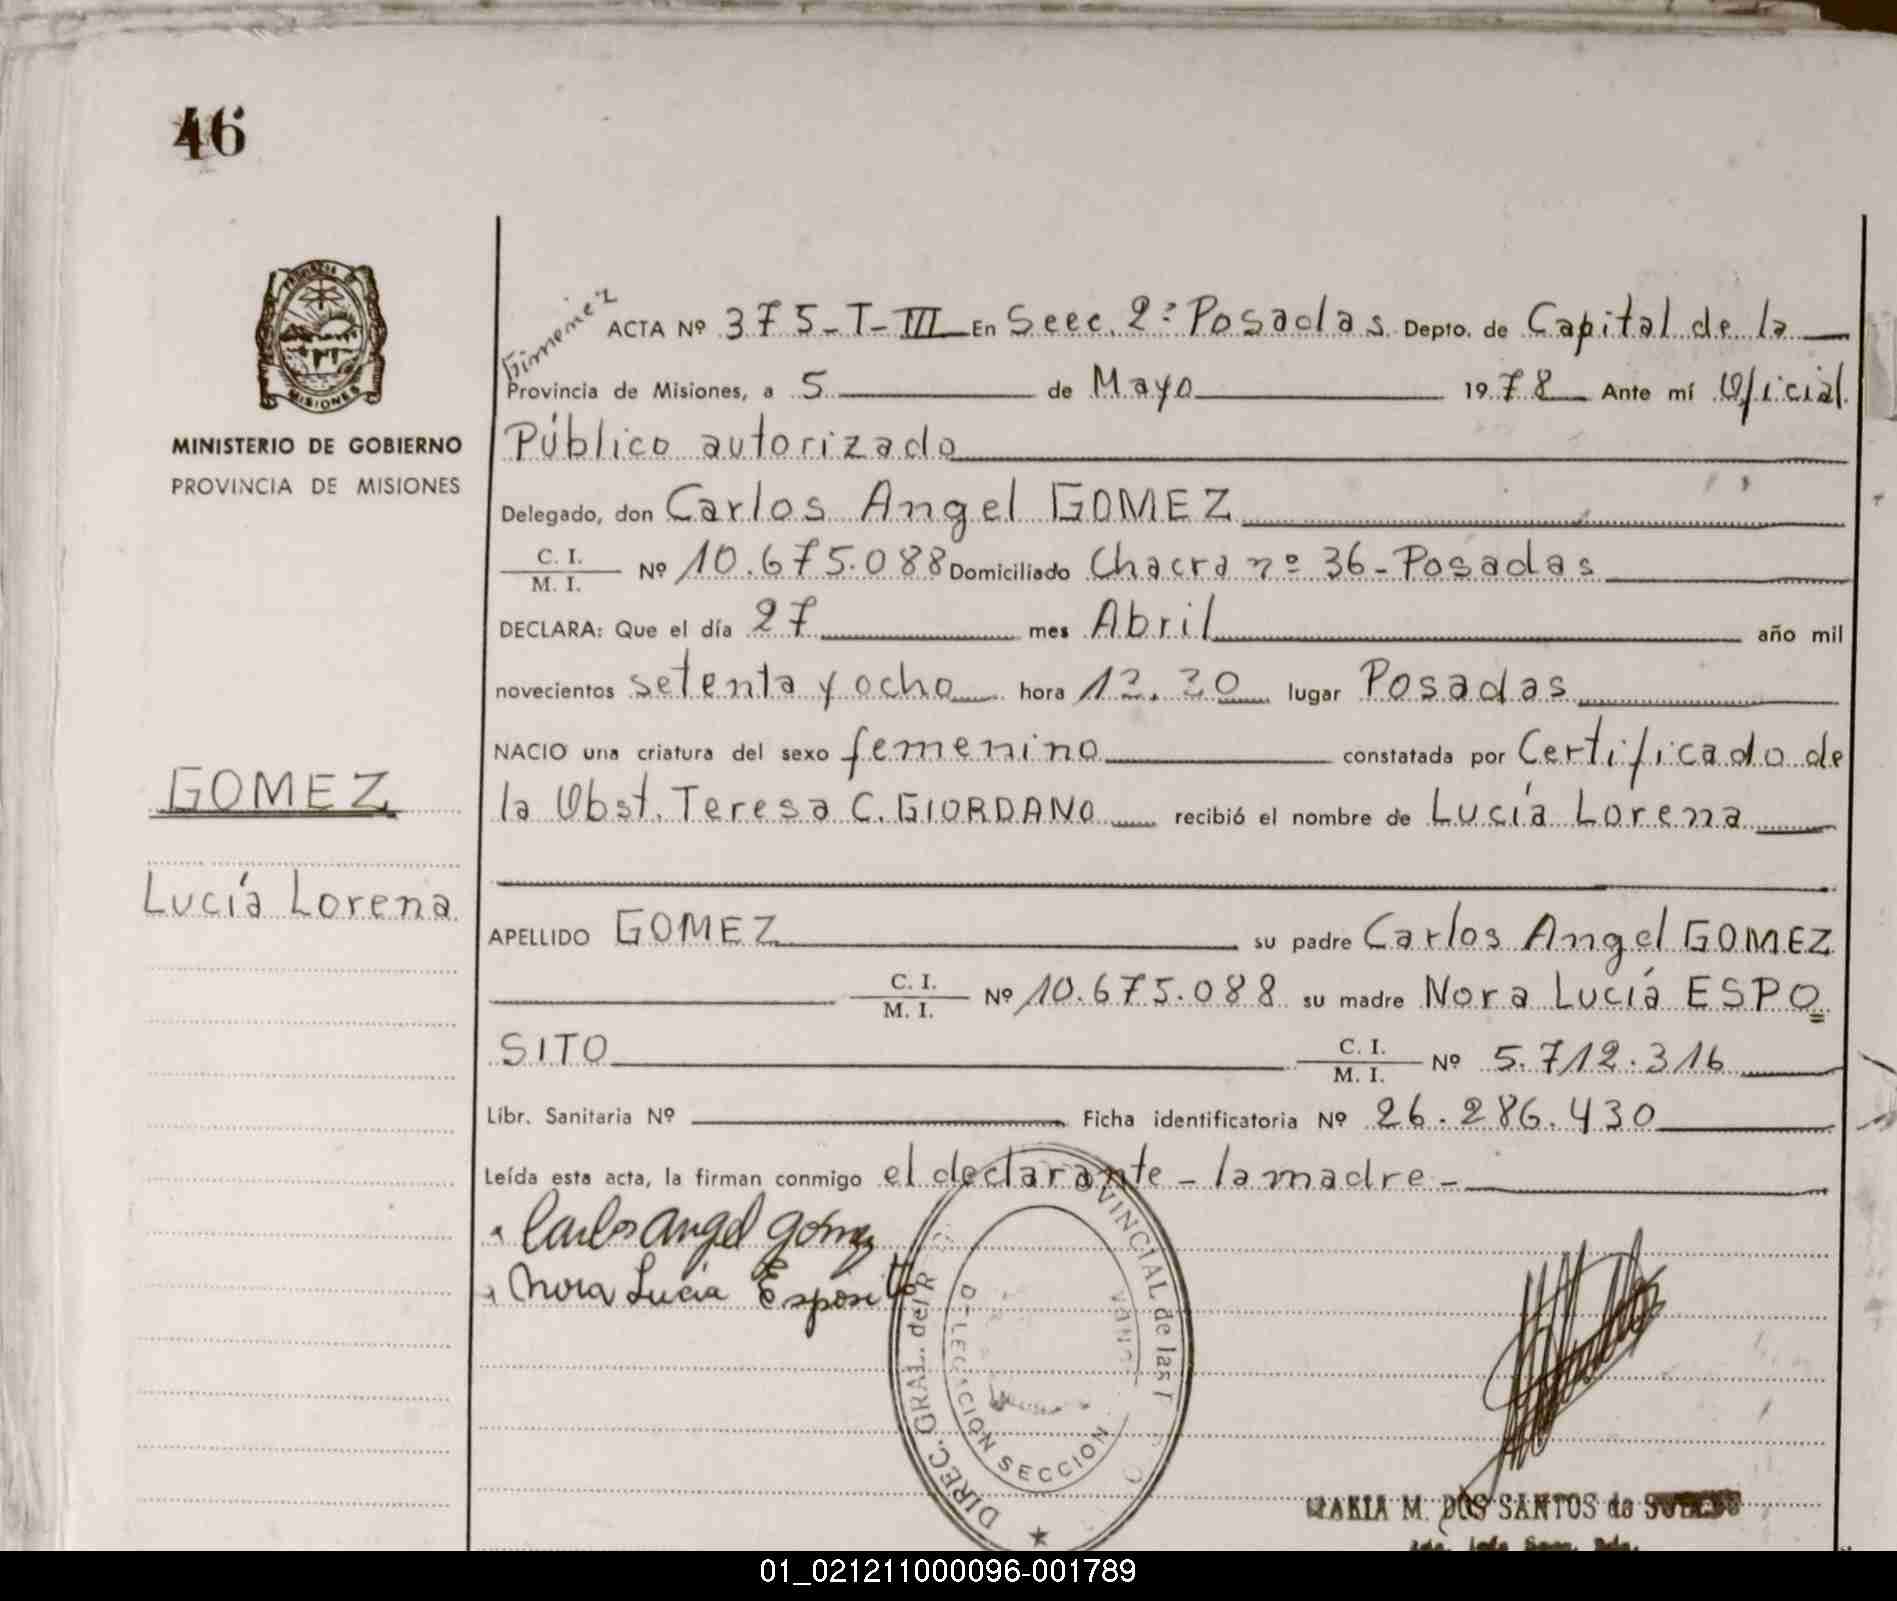 46
PROVINCIA DE
MISIONES
MINISTERIO DE GOBIERNO
PROVINCIA DE MISIONES
GOMEZ
Lucía Lorena
Gimenez
ACTA Nº 375-T-III En Secc. 2ª Posadas Depto. de Capital de la
Provincia de Misiones, a 5 de Mayo 1978 Ante mí Oficial
Público autorizado
Delegado, don Carlos Angel GOMEZ
C. I.
M. I. Nº 10.675.088 Domiciliado Chacra nº 36-Posadas
DECLARA: Que el día 27 mes Abril año mil
novecientos setenta y ocho hora 12.20 lugar Posadas
NACIO una criatura del sexo femenino constatada por Certificado de
la Obst. Teresa C. GIORDANO recibió el nombre de Lucía Lorena
APELLIDO GOMEZ su padre Carlos Angel GOMEZ
C. I.
M. I. Nº 10.675.088 su madre Nora Lucía ESPO=
SITO C. I.
M. I. Nº 5.712.316
Libr. Sanitaria Nº Ficha identificatoria Nº 26.286.430
Leída esta acta, la firman conmigo el declarante - la madre -
Carlos Angel Gómez
Nora Lucia Esposito
DIREC. GRAL. del R PROVINCIAL de las
DELEGACION SECCION
MARIA M. DOS SANTOS de
01_021211000096-001789